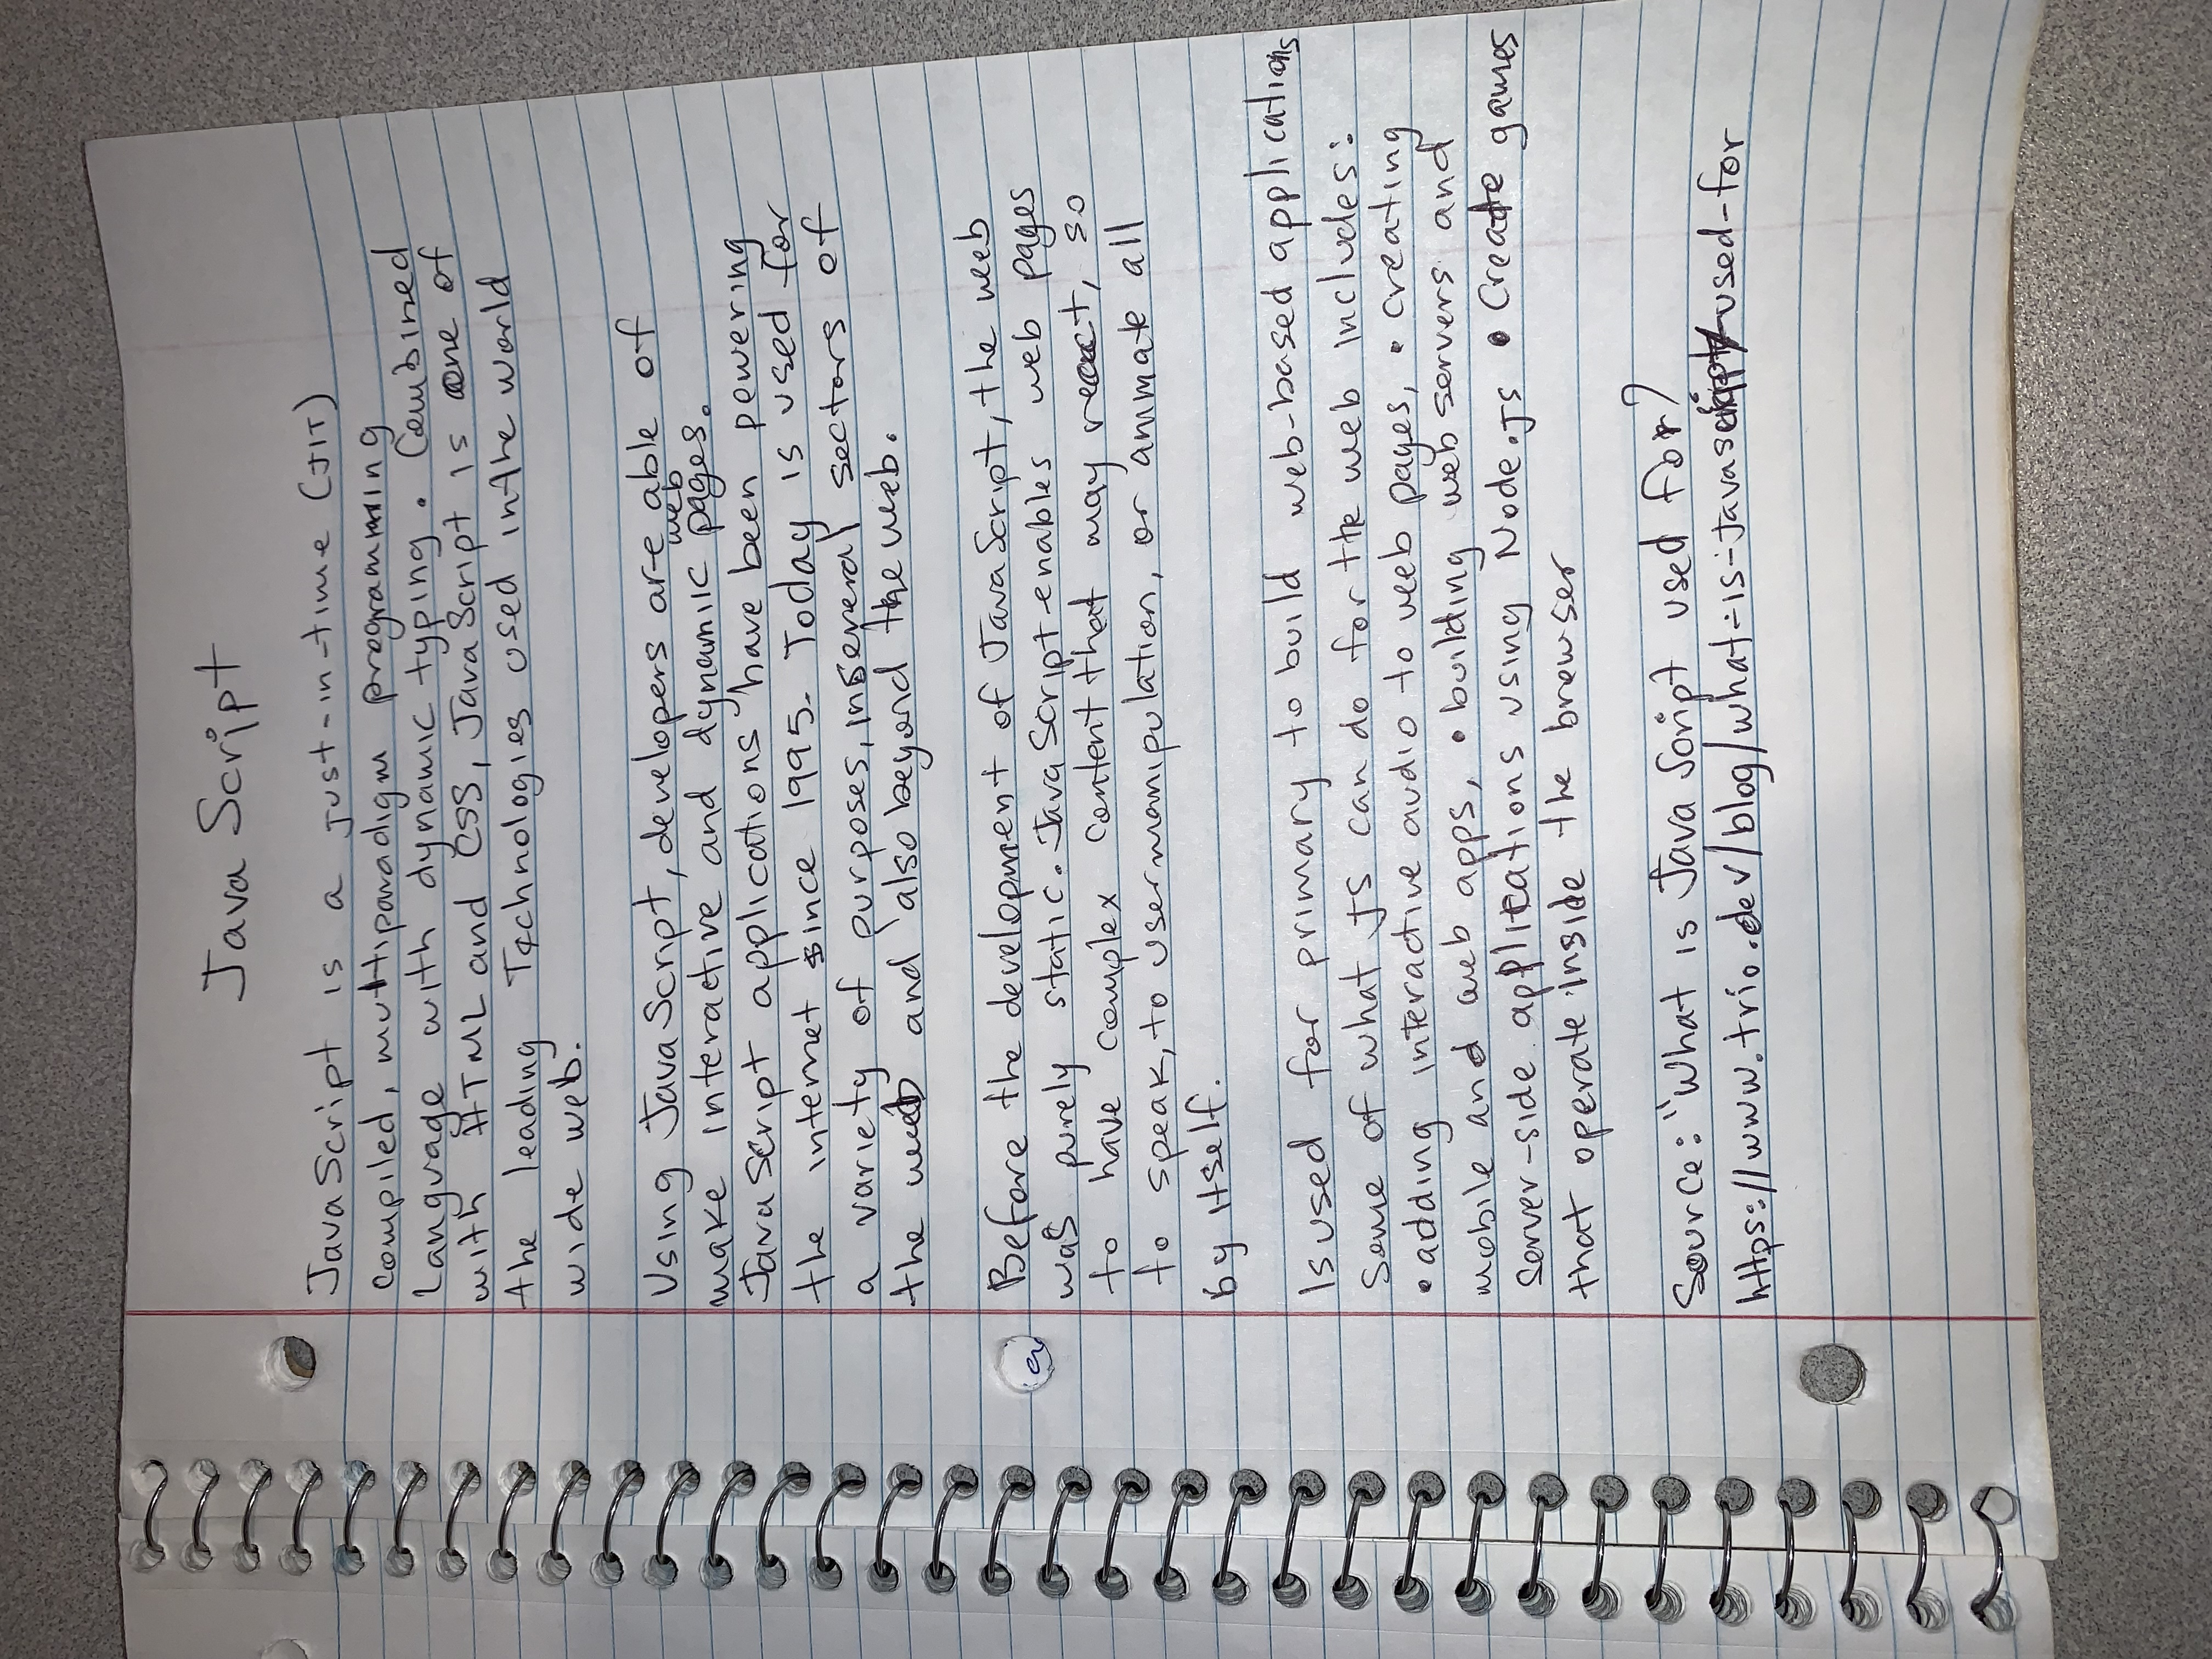 Java Script
JavaScript is a just-in-time (JIT)
compiled, multiparadigm programming
language with dynamic typing. Combined
with HTML and CSS, JavaScript is one of
the leading Technologies used in the world
wide web.
Using JavaScript, developers are able of
make interactive and dynamiic web pages.
JavaScript applications have been powering
the internet since 1995. Today is used for
a variety of purposes, in several sectors of
the web and also beyond the web.
Before the development of JavaScript, the web
was purely static. JavaScript enables web pages
to have complex content that may react, so
to speak, to user manipulation, or animate all
by itself.
Is used for primary to build web-based applications
Some of what JS can do for the web includes:
• adding interactive audio to web pages, • creating
mobile and web apps, • building web servers and
server-side applications using Node.js • Create games
that operate inside the browser
Source: "What is Java Script used for?
https://www.trio.dev/blog/what-is-javascript-used-for